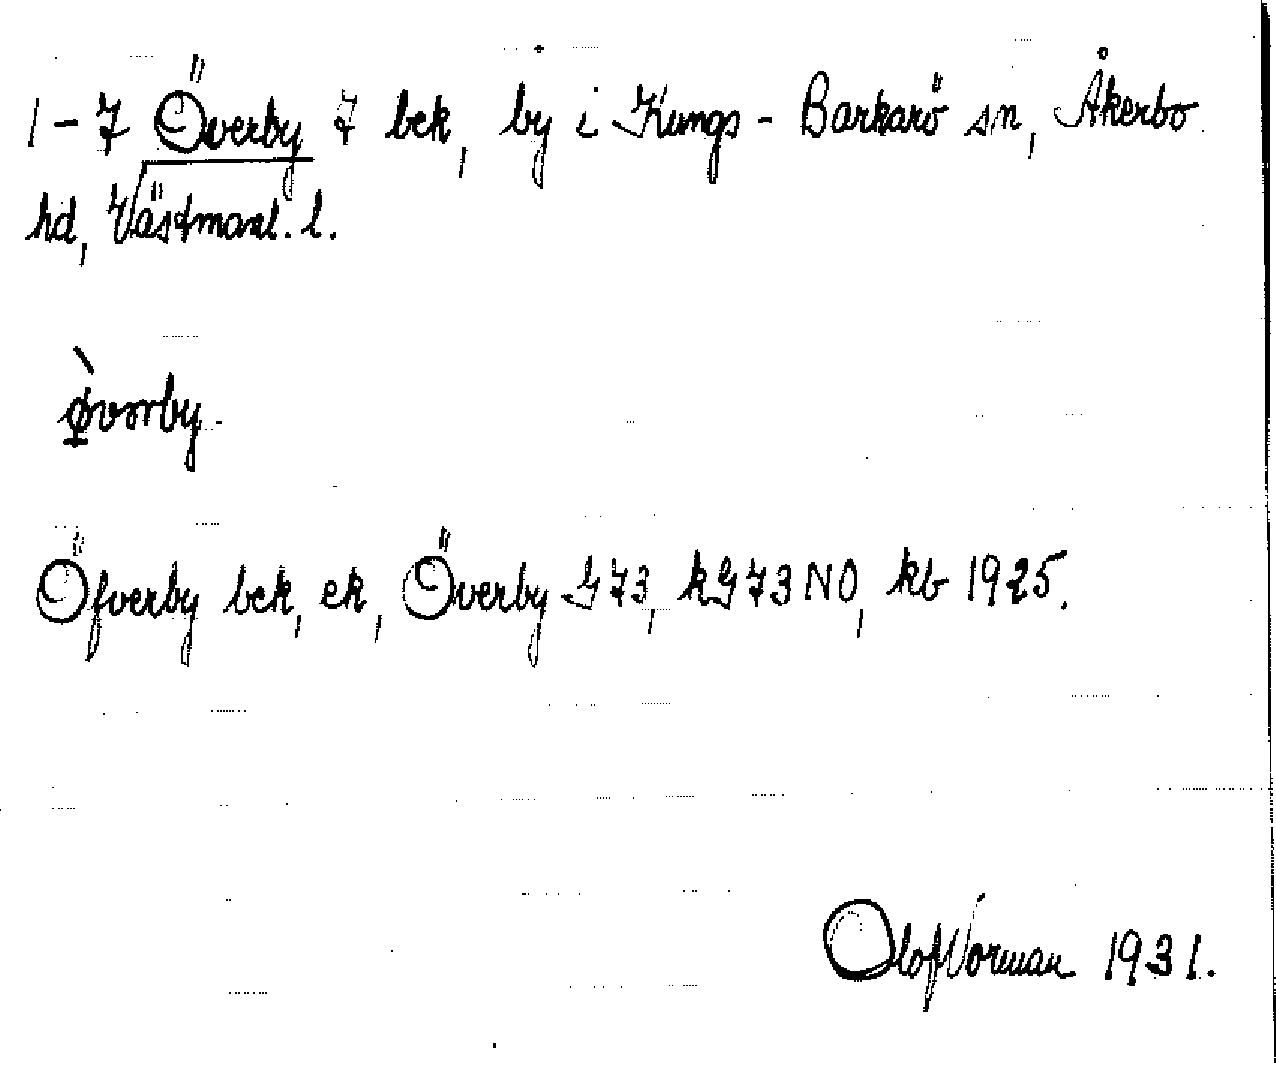 1-7 Överby 7 bek, by i Kungs-Barkarö sn, Åkerbo
hd, Västmanl. l.
Öfverby bek, ek, Överby G73, kG73NO, kb 1925.
Olof Norman 1931.